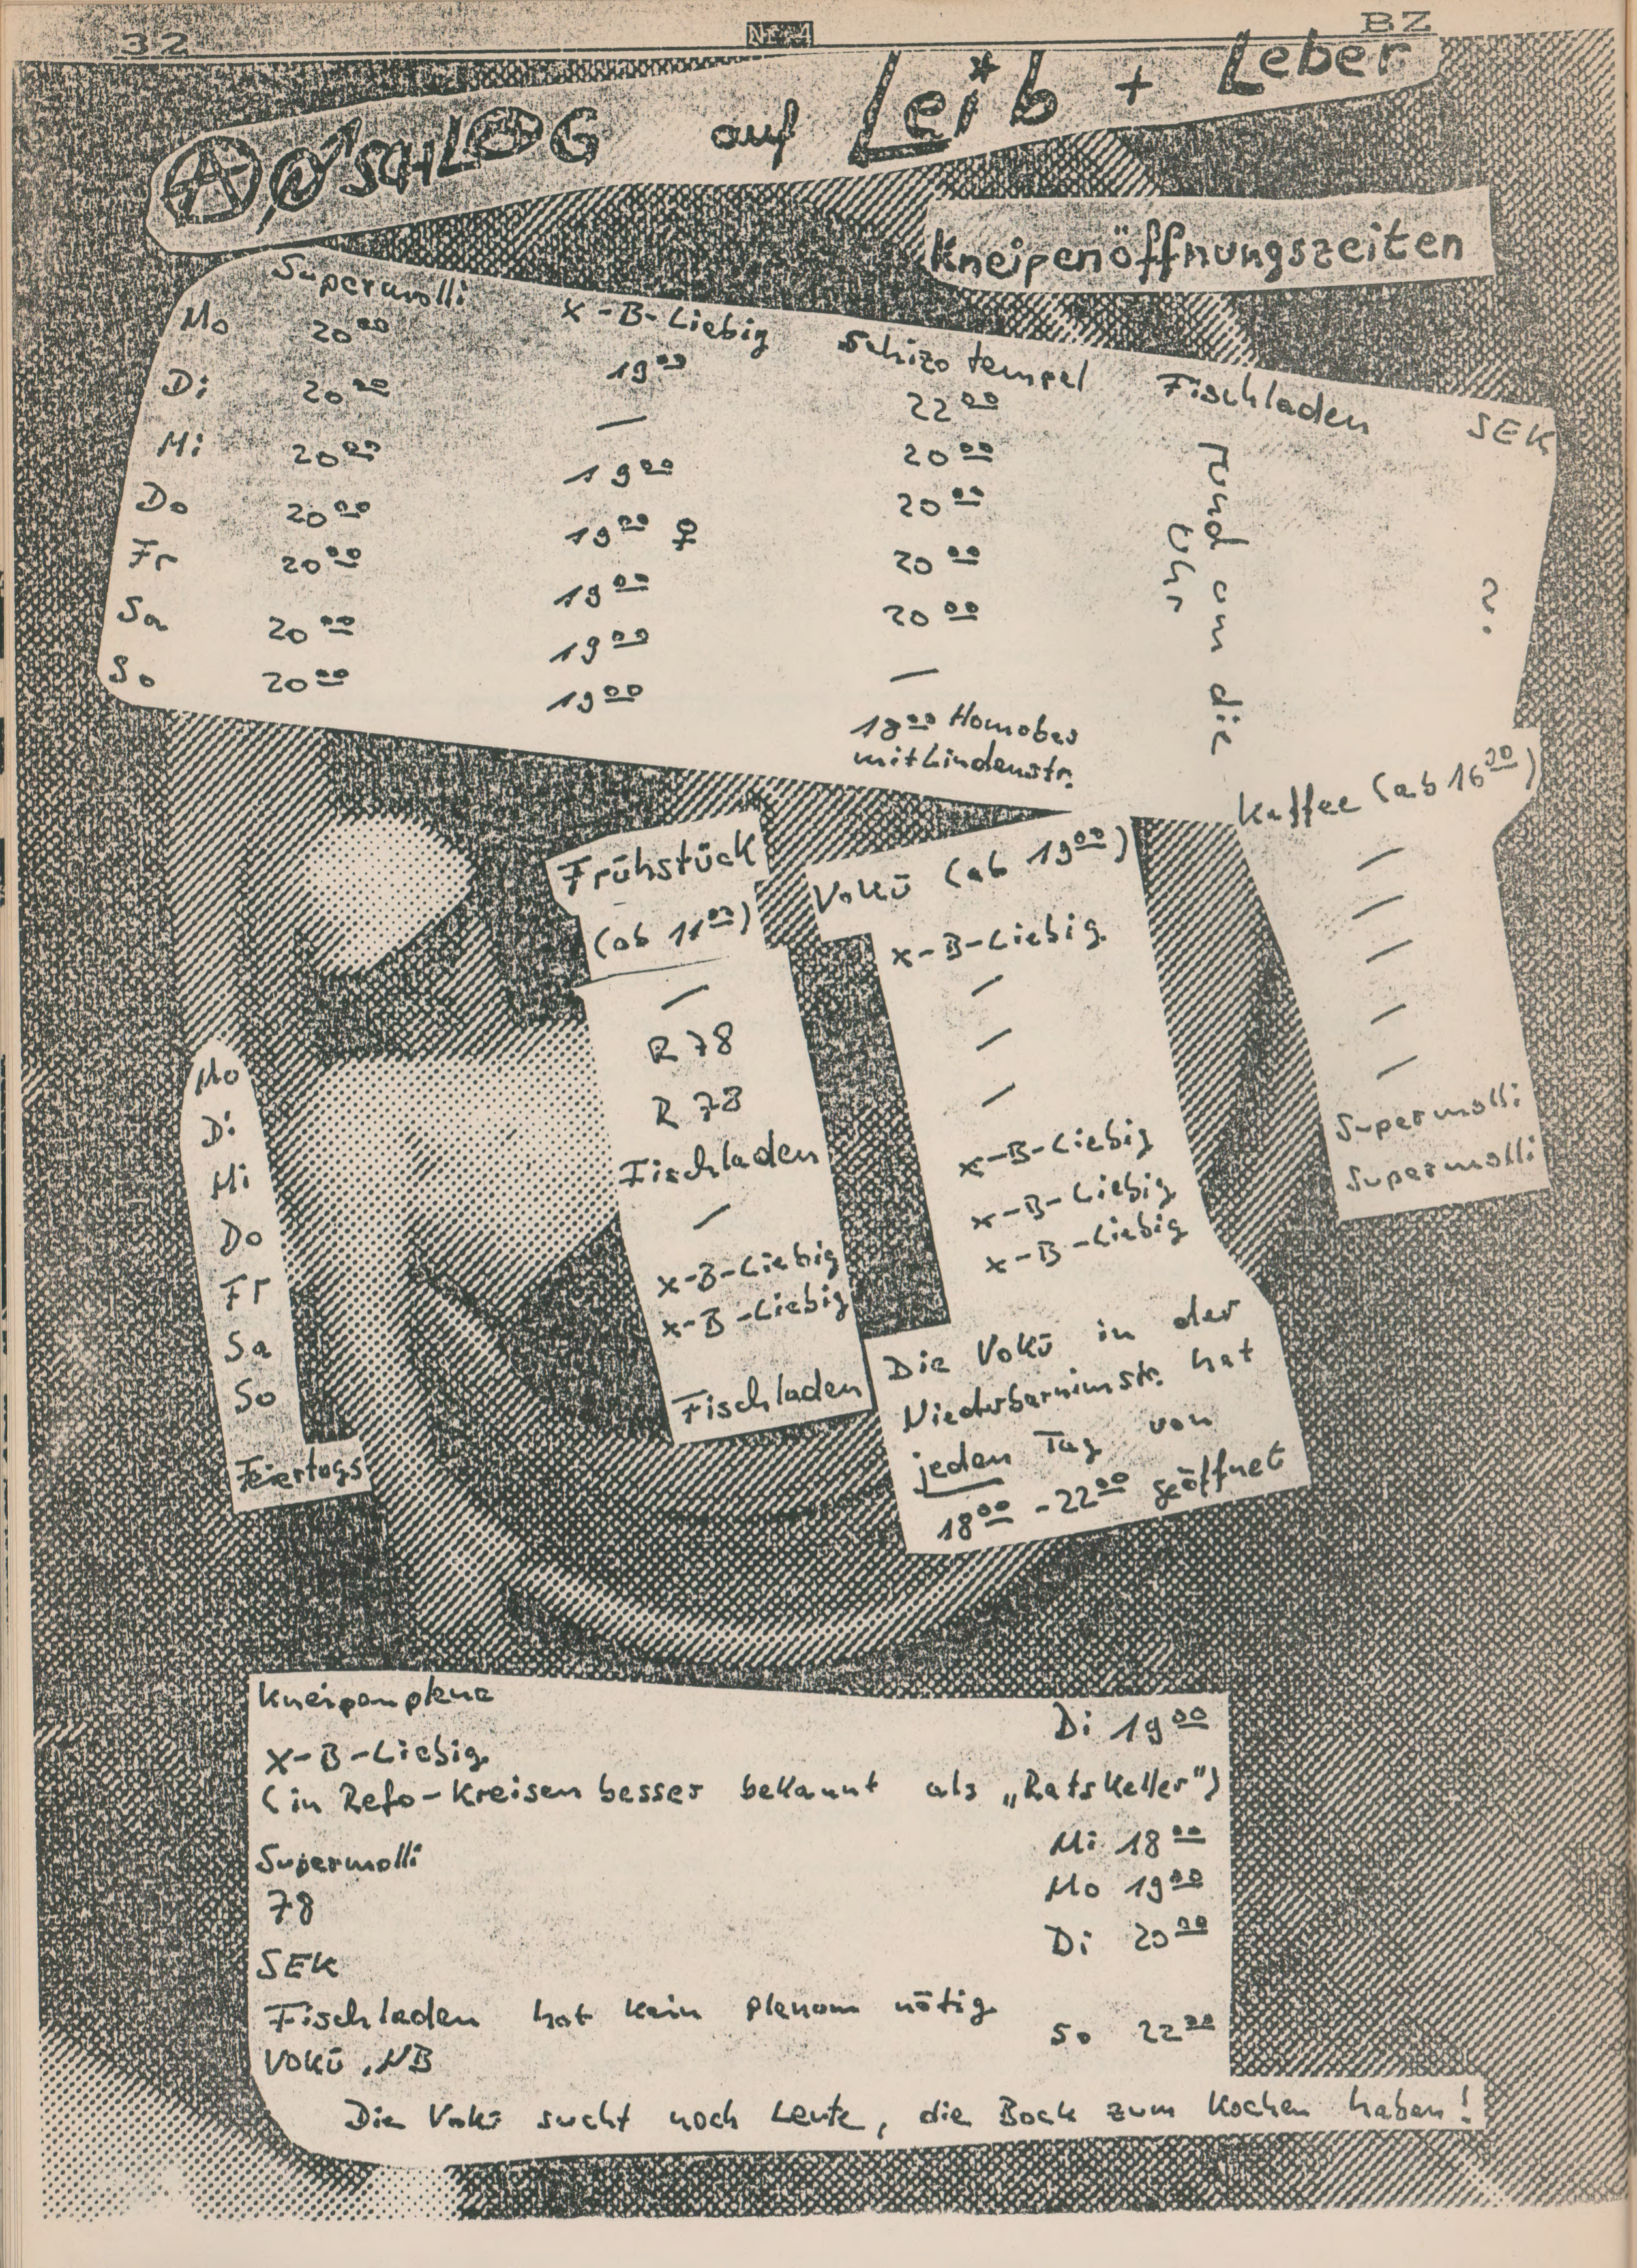 32 Nr. 4 BZ
ANSCHLAG auf Leib + Leber
Kneipenöffnungszeiten
Supermolli X-B-Liebig Schizotempel Fischladen SEK
Mo 20⁰⁰ 19⁰⁰ 22⁰⁰
Di 20⁰⁰ — 20⁰⁰
Mi 20⁰⁰ 19⁰⁰ 20⁰⁰
Do 20⁰⁰ 19⁰⁰ ♀ 20⁰⁰
Fr 20⁰⁰ 19⁰⁰ 20⁰⁰
Sa 20⁰⁰ 19⁰⁰ —
So 20⁰⁰ 19⁰⁰ 18⁰⁰ Homobar
mit Lindenstr.
rund um die
Uhr
?
Mo
Di
Mi
Do
Fr
Sa
So
Feiertags
Frühstück
(ab 11⁰⁰)
—
R 78
R 78
Fischladen
—
X-B-Liebig
X-B-Liebig
Fischladen
Vokü (ab 19⁰⁰)
X-B-Liebig
—
—
—
X-B-Liebig
X-B-Liebig
X-B-Liebig
Die Vokü in der
Niederbarnimstr. hat
jeden Tag von
18⁰⁰ - 22⁰⁰ geöffnet
Kaffee (ab 16⁰⁰)
—
—
—
—
—
Supermolli
Supermolli
Kneipenplena
X-B-Liebig Di 19⁰⁰
(in Refo-Kreisen besser bekannt als „Ratskeller")
Supermolli Mi 18⁰⁰
78 Mo 19⁰⁰
SEK Di 20⁰⁰
Fischladen hat kein plenum nötig
VOKÜ, NB So 22⁰⁰
Die Vokü sucht noch Leute, die Bock zum Kochen haben!